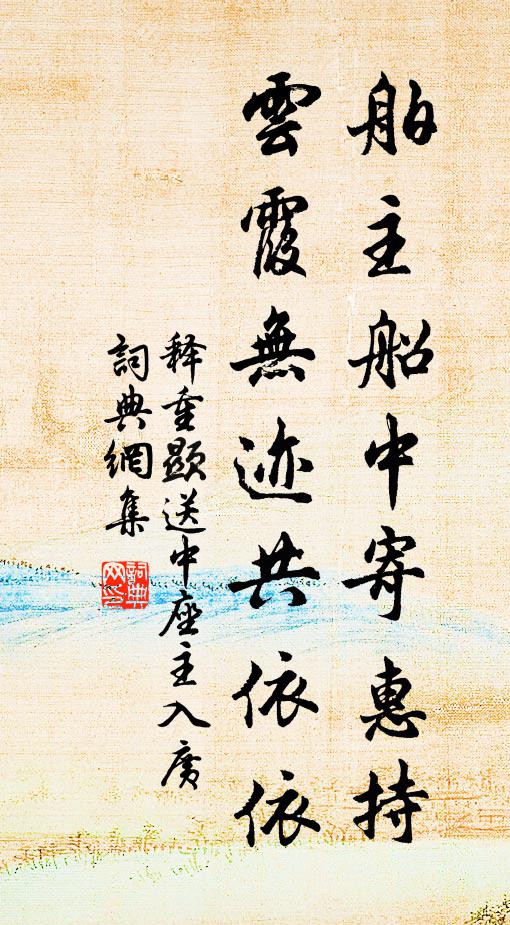 舶主船中寄惠持
雲霞無迹共依依
释重顯送中座主入廣
詞典網集
詞典
网印